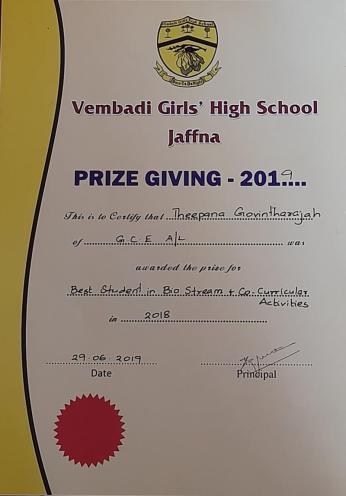 Vembadi Girls' High School
Jaffna
PRIZE GIVING - 2019....
This is to Certify that Theepana Govintharajah
of G C E A/L was
awarded the prize for
Best Student in Bio Stream + Co-Curricular
Activities
in 2018
29.06.2019
Date
Principal